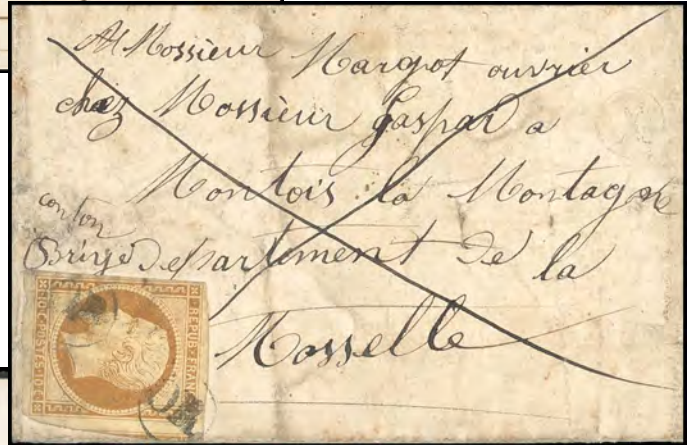 A Mossieur Margot ouvrier
chez Mossieur Gaspar a
Montois la Montagne
conton
Briey Departiment de la
Mosselle
10 c. POSTES 10 c.
REPUB. FRANC
OR